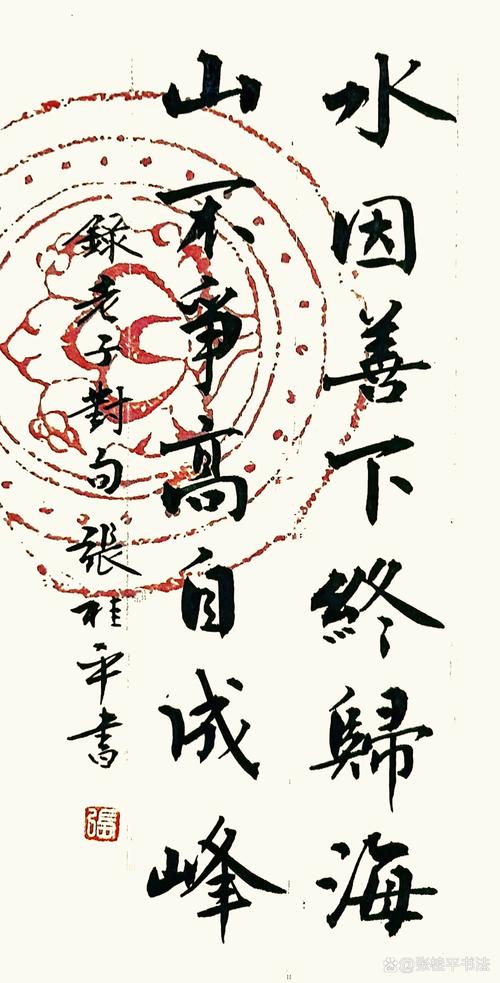 水因善下終歸海
山不爭高自成峰
録老子對句張桂平書
張
@张桂平书法